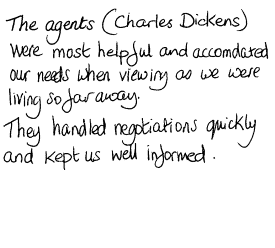 The agents (Charles Dickens)
were most helpful and accomdated
our needs when viewing as we were
living so far away.
They handled negotiations quickly
and kept us well informed.